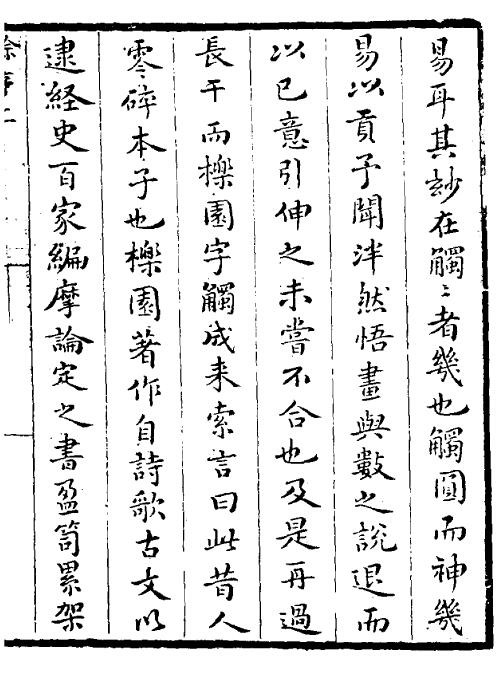 易耳其玅在觸〻者幾也觸圓而神幾
易以貢予聞泮然悟畫與數之說退而
以已意引伸之未嘗不合也及是再過
長干而櫟園字觸成来索言曰此昔人
零碎本子也櫟園著作自詩歌古文以
逮経史百家編摩論定之書盈笥累架